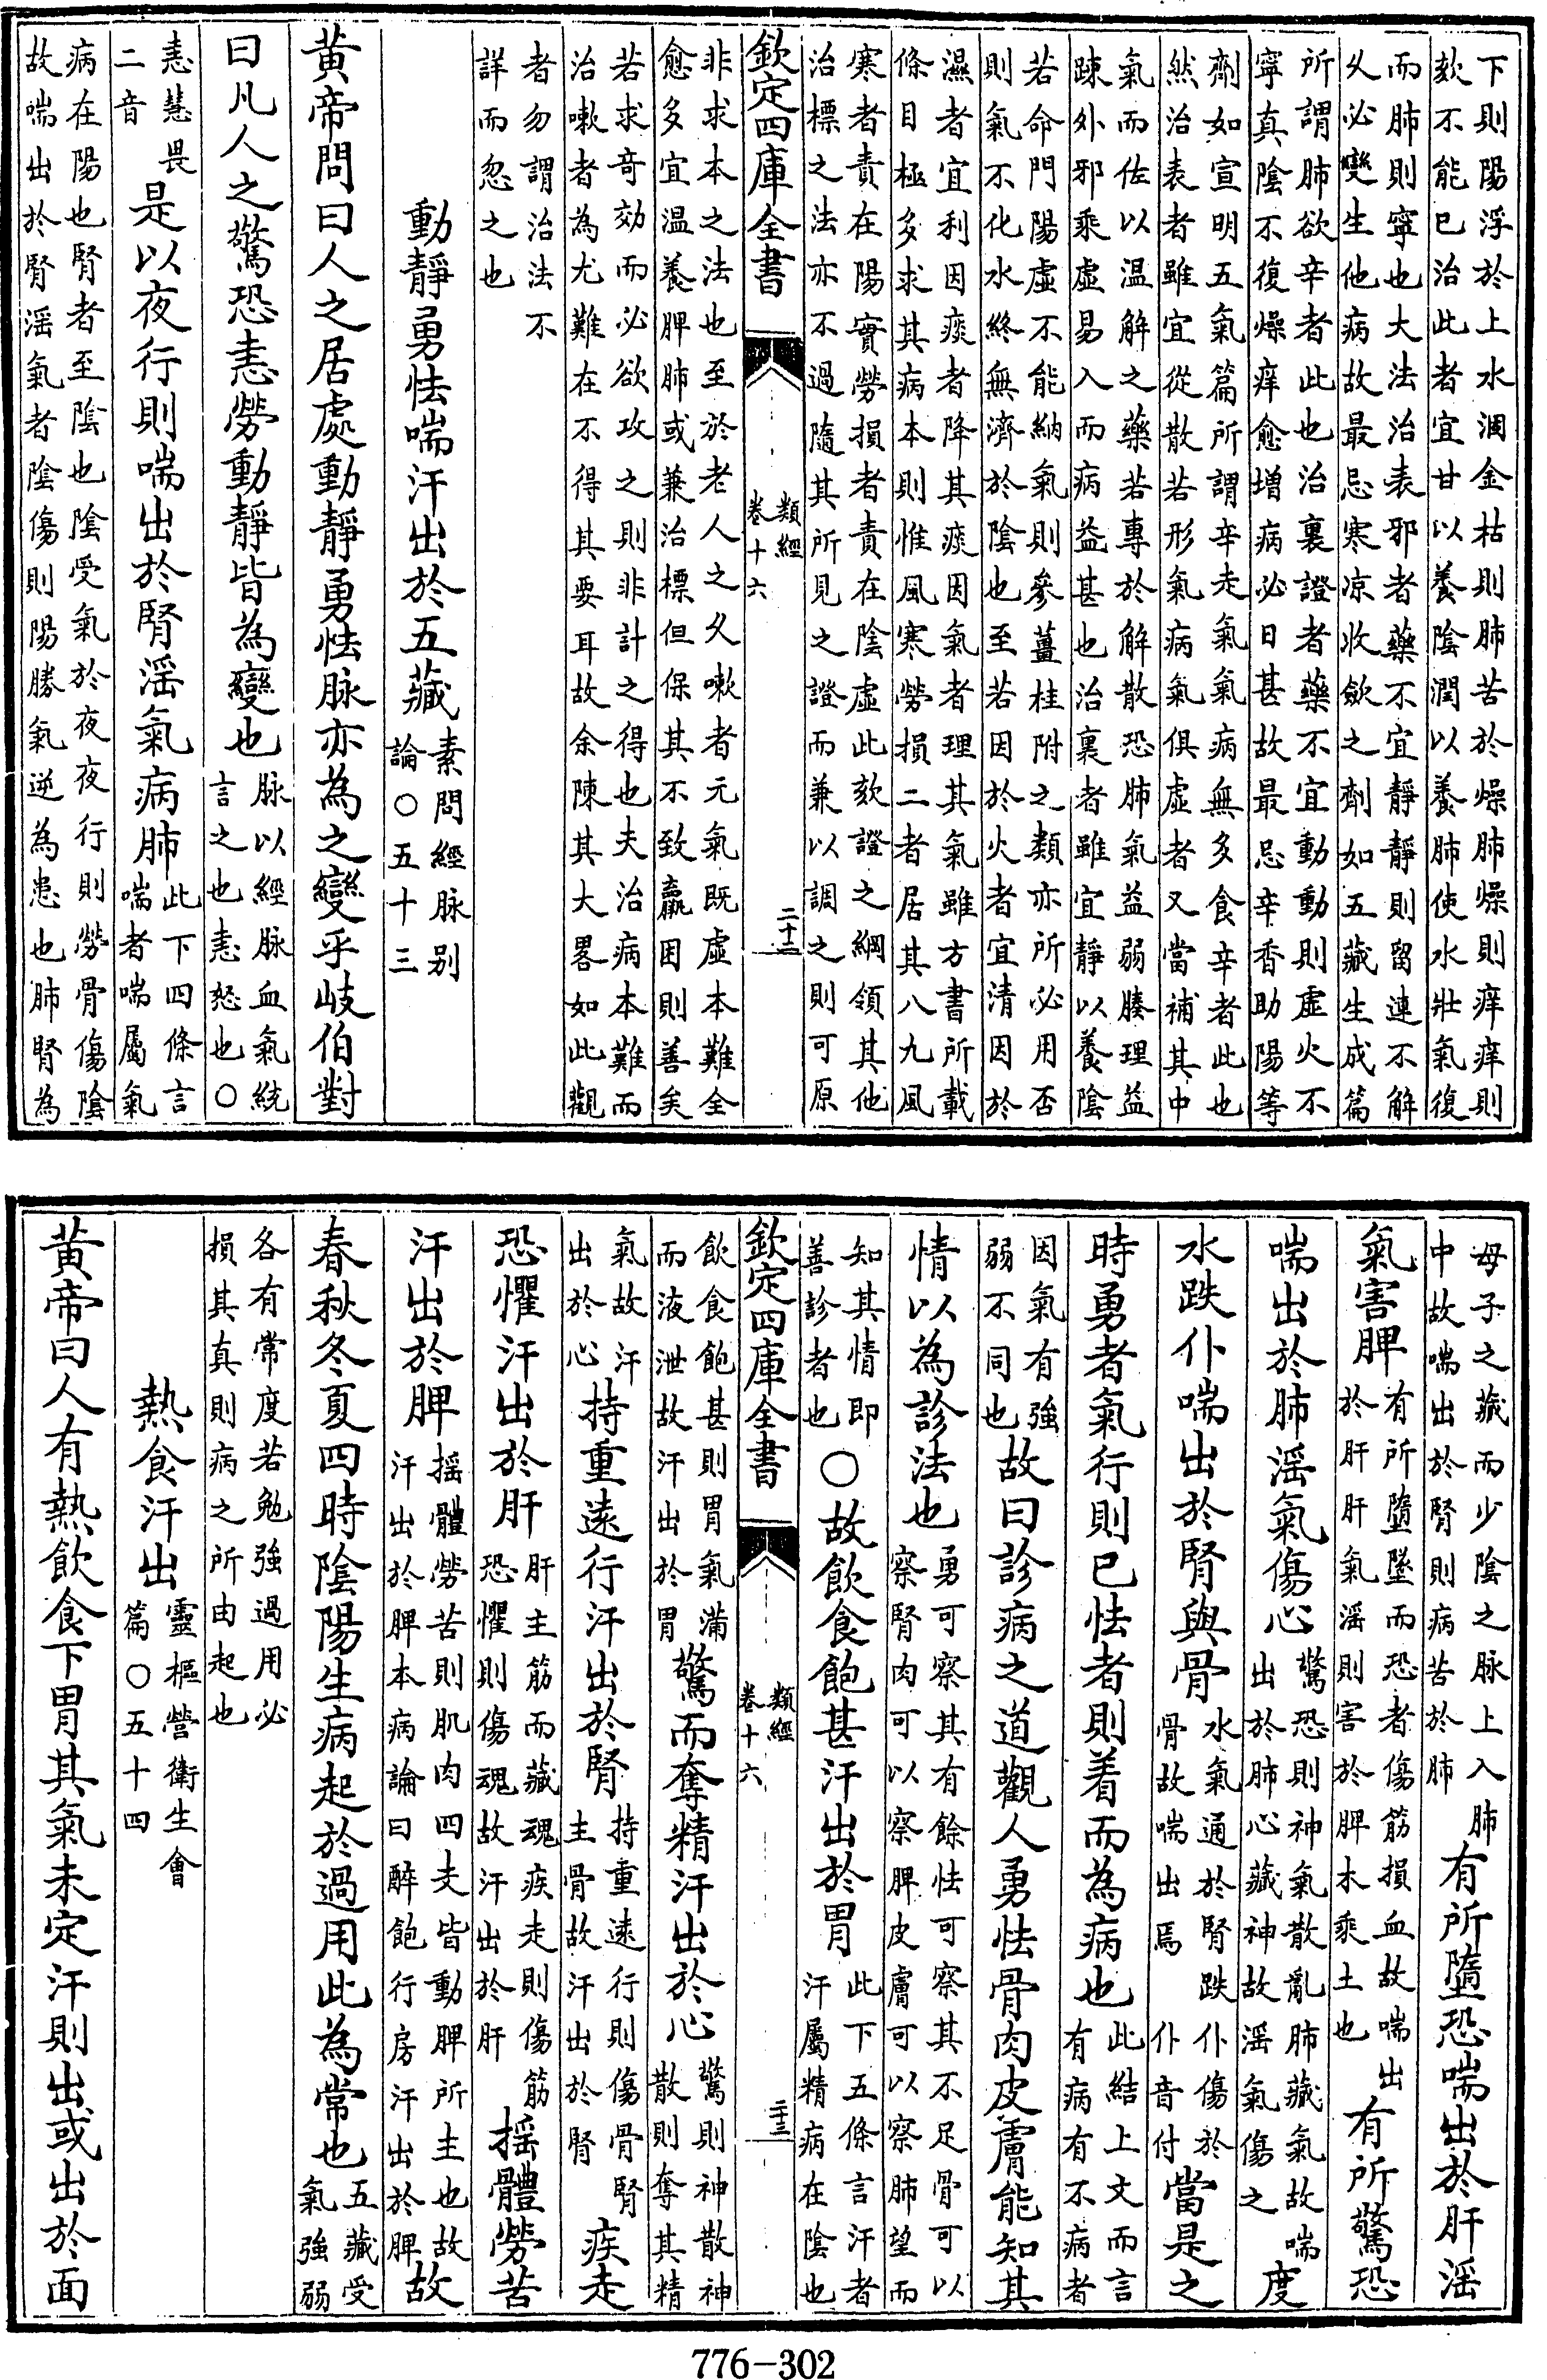 下則陽浮於上水涸金枯則肺苦於燥肺燥則痒痒則
欬不能已治此者宜甘以養陰潤以養肺使水壯氣復
而肺則寧也大法治表邪者藥不宜靜靜則留連不解
乆必變生他病故最忌寒凉收斂之劑如五藏生成篇
所謂肺欲辛者此也治裏證者藥不宜動動則虛火不
寧真陰不復燥痒愈增病必日甚故最忌辛香助陽等
劑如宣明五氣篇所謂辛走氣氣病無多食辛者此也
然治表者雖宜從散若形氣病氣俱虛者又當補其中
氣而佐以温解之藥若專於解散恐肺氣益弱腠理益
踈外邪乘虛易入而病益甚也治裏者雖宜靜以養陰
若命門陽虛不能納氣則參薑桂附之類亦所必用否
則氣不化水終無濟於陰也至若因於火者宜清因於
濕者宜利因痰者降其痰因氣者理其氣雖方書所載
條目極多求其病本則惟風寒勞損二者居其八九風
寒者責在陽實勞損者責在陰虛此欬證之綱領其他
治標之法亦不過隨其所見之證而兼以調之則可原
欽定四庫全書
類經
卷十六
二十二
非求本之法也至於老人之乆嗽者元氣既虛本難全
愈多宜温養脾肺或兼治標但保其不致羸困則善矣
若求奇効而必欲攻之則非計之得也夫治病本難而
治嗽者為尤難在不得其要耳故余陳其大畧如此觀
者勿謂治法不
詳而忽之也
動靜勇怯喘汗出於五藏素問經脉别論○五十三
黄帝問曰人之居處動靜勇怯脉亦為之變乎岐伯對
曰凡人之驚恐恚勞動靜皆為變也脉以經脉血氣統言之也恚怒也○
恚慧畏二音是以夜行則喘出於腎淫氣病肺此下四條言喘者喘屬氣
病在陽也腎者至陰也陰受氣於夜夜行則勞骨傷陰
故喘出於腎淫氣者陰傷則陽勝氣逆為患也肺腎為
母子之藏而少陰之脉上入肺中故喘出於腎則病苦於肺有所墮恐喘出於肝淫
氣害脾有所墮墜而恐者傷筋損血故喘出於肝肝氣淫則害於脾木乘土也有所驚恐
喘出於肺淫氣傷心驚恐則神氣散亂肺藏氣故喘出於肺心藏神故淫氣傷之度
水跌仆喘出於腎與骨水氣通於腎跌仆傷於骨故喘出焉仆音付當是之
時勇者氣行則已怯者則着而為病也此結上文而言有病有不病者
因氣有強弱不同也故曰診病之道觀人勇怯骨肉皮膚能知其
情以為診法也勇可察其有餘怯可察其不足骨可以察腎肉可以察脾皮膚可以察肺望而
知其情即善診者也○故飲食飽甚汗出於胃此下五條言汗者汗屬精病在陰也
欽定四庫全書
類經
卷十六
二十三
飲食飽甚則胃氣滿而液泄故汗出於胃驚而奪精汗出於心驚則神散神散則奪其精
氣故汗出於心持重遠行汗出於腎持重遠行則傷骨腎主骨故汗出於腎疾走
恐懼汗出於肝肝主筋而藏魂疾走則傷筋恐懼則傷魂故汗出於肝揺體勞苦
汗出於脾揺體勞苦則肌肉四支皆動脾所主也故汗出於脾本病論曰醉飽行房汗出於脾故
春秋冬夏四時陰陽生病起於過用此為常也五藏受氣強弱
各有常度若勉強過用必
損其真則病之所由起也
熱食汗出靈樞營衛生會篇○五十四
黄帝曰人有熱飲食下胃其氣未定汗則出或出於面
776-302